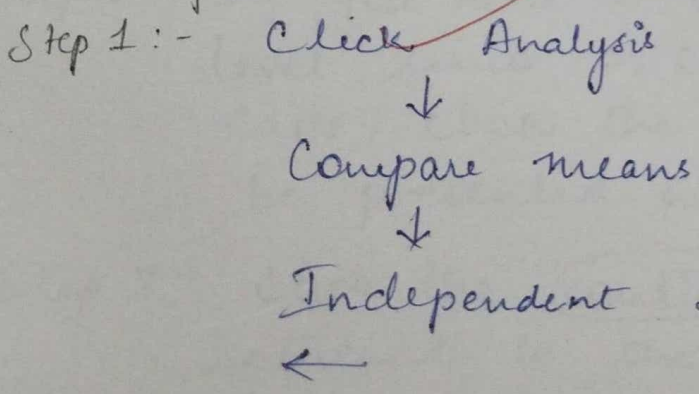 Step 1 :- Click Analysis
↓
Compare means
↓
Independent
←